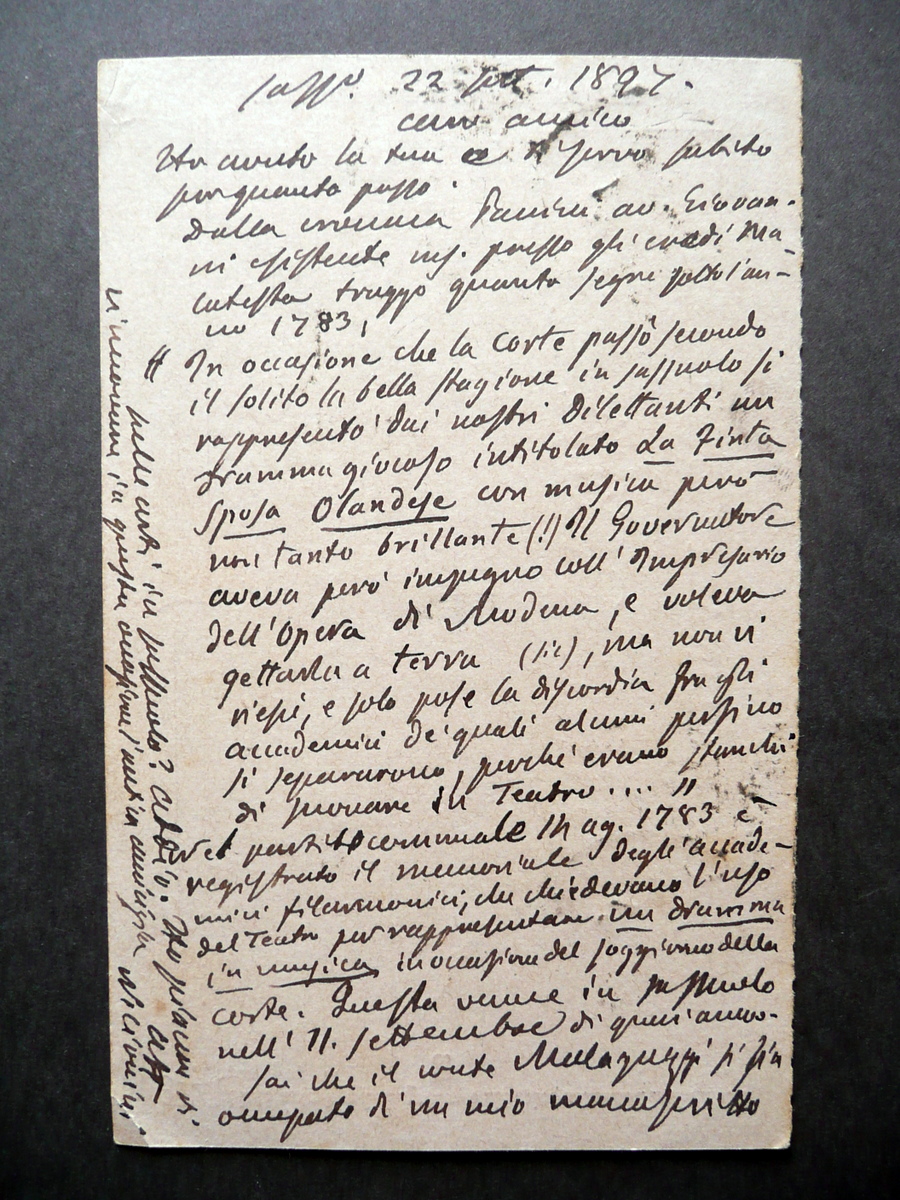 Sass.º 22 sett. 1897.
caro amico
Ho avuto la tua e ti servo subito
per quanto posso.
Dalla cronaca Panini av. Giovan-
ni esistente ms. presso gli eredi Ma-
catesta traggo quanto segue sotto l'an-
no 1783,
" In occasione che la corte passò secondo
il solito la bella stagione in Sassuolo si
rappresentò dai nostri Dilettanti un
dramma giocoso intitolato La Finta
Sposa Olandese con musica però
non tanto brillante (!) Il Governatore
aveva però impegno coll' Impresario
dell'Opera di Modena, e voleva
gettarla a terra (sic), ma non vi
riescì, e solo pose la discordia fra gli
accademici de' quali alcuni persino
si separarono, perché erano stanchi
di suonare in Teatro .... "
Nel partito comunale 14 ag. 1783 è
registrato il memoriale degli accade-
mici filarmonici, che chiedevano l'uso
del Teatro per rappresentare un dramma
in musica in occasione del soggiorno della
corte. Questa venne in Sassuolo
nell' 11. settembre di quest'anno-
Sai che il conte Malaguzzi si sia
occupato di un mio manoscritto
nelle arti in Sassuolo? Addio. Ho piacere di
rinnovare in questa occasione l'antica amicizia
aff